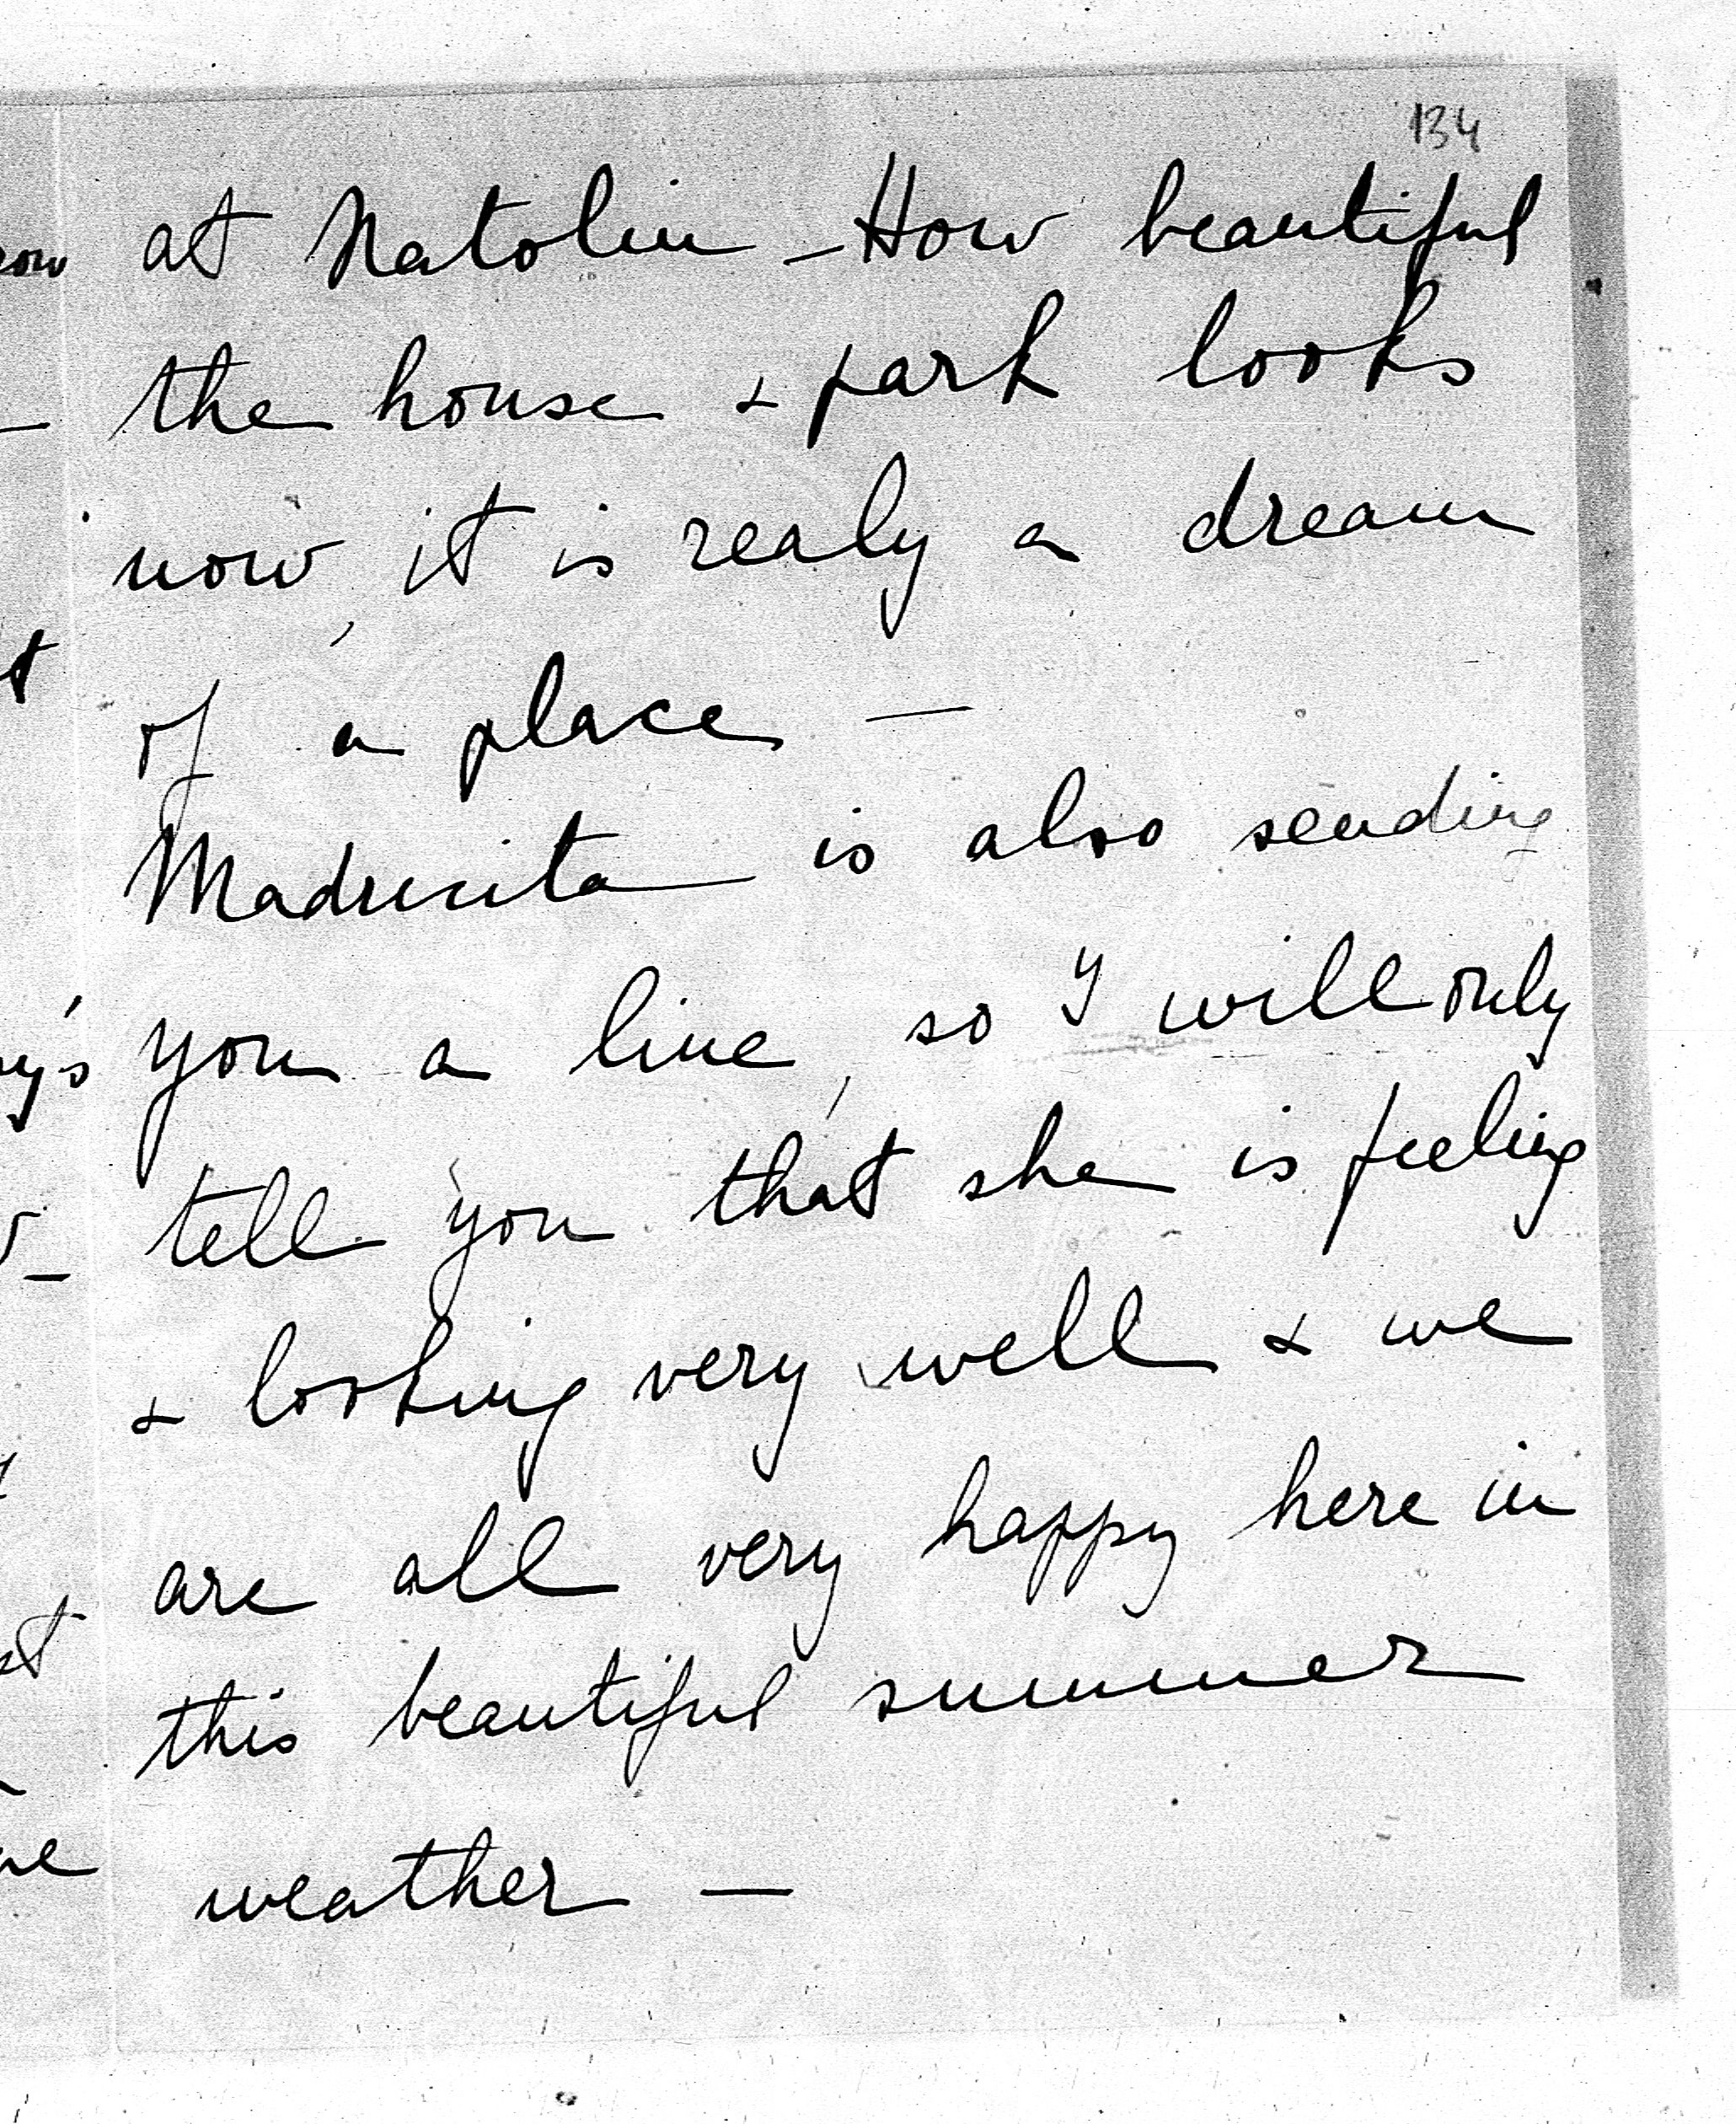 134
at Natolin - How beautiful
the house & park looks
now, it is realy a dream
of a place —
Madrecita is also sending
you a line, so I will only
tell you that she is feeling
& looking very well & we
are all very happy here in
this beautiful summer
weather —